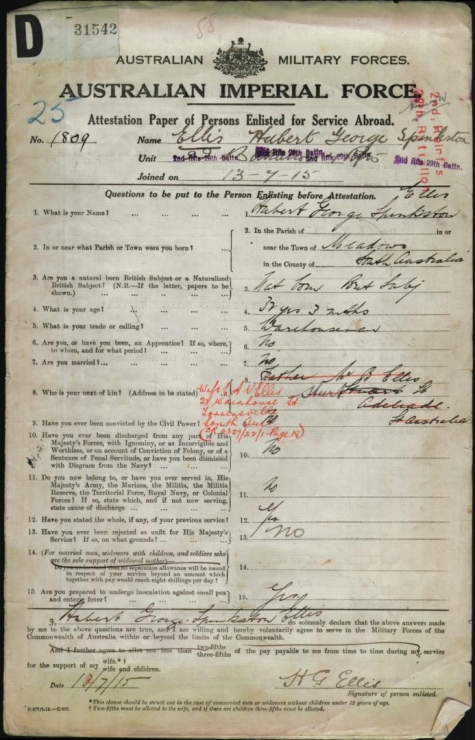 D
31542
58
AUSTRALIAN MILITARY FORCES.
AUSTRALIAN IMPERIAL FORCE
25
Attestation Paper of Persons Enlisted for Service Abroad.
No. 1809 Name Ellis Hubert George Spinkston
Unit 2nd Rfts 29th Battn. 2nd Rfts 29th Battn.
Joined on 13-7-15
Questions to be put to the Person Enlisting before Attestation.
1. What is your Name? 1. Hubert George Spinkston Ellis
2. In or near what Parish or Town were you born? 2. In the Parish of in or
near the Town of Meadows
in the County of South Australia
3. Are you a natural born British Subject or a Naturalized
British Subject? (N.B.—If the latter, papers to be
shown.) 3. Nat born Brit Subj
4. What is your age? 4. yrs 3 mths
5. What is your trade or calling? 5. Warehouseman
6. Are you, or have you been, an Apprentice? If so, where,
to whom, and for what period? 6. No
7. Are you married? 7. No
8. Who is your next of kin? (Address to be stated) 8. Father Mr Ellis
St
Adelaide
S Australia
Wife Ellis
24 Warehouse St
South Aust
9. Have you ever been convicted by the Civil Power? 9. No
10. Have you ever been discharged from any part of His
Majesty's Forces, with Ignominy, or as Incorrigible and
Worthless, or on account of Conviction of Felony, or of a
Sentence of Penal Servitude, or have you been dismissed
with Disgrace from the Navy? 10. No
11. Do you now belong to, or have you ever served in, His
Majesty's Army, the Marines, the Militia, the Militia
Reserve, the Territorial Force, Royal Navy, or Colonial
Forces? If so, state which, and if not now serving,
state cause of discharge 11. No
12. Have you stated the whole, if any, of your previous service? 12. Yes
13. Have you ever been rejected as unfit for His Majesty's
Service? If so, on what grounds? 13. No
14. (For married men, widowers with children, and soldiers who
are the sole support of widowed mother—
Do you understand that no separation allowance will be issued
in respect of your service beyond an amount which
together with pay would reach eight shillings per day? 14.
15. Are you prepared to undergo inoculation against small pox
and enteric fever? 15. Yes
I, Hubert George Spinkston Ellis do solemnly declare that the above answers made
by me to the above questions are true, and I am willing and hereby voluntarily agree to serve in the Military Forces of the
Commonwealth of Australia within or beyond the limits of the Commonwealth.
And I further agree to allot not less than two-fifths three-fifths of the pay payable to me from time to time during my service
for the support of my wife.*† wife and children.
Date 13/7/15 H G Ellis
Signature of person enlisted.
* This clause should be struck out in the case of unmarried men or widowers without children under 18 years of age.
† Two-fifths must be allotted to the wife, and if there are children three-fifths must be allotted.